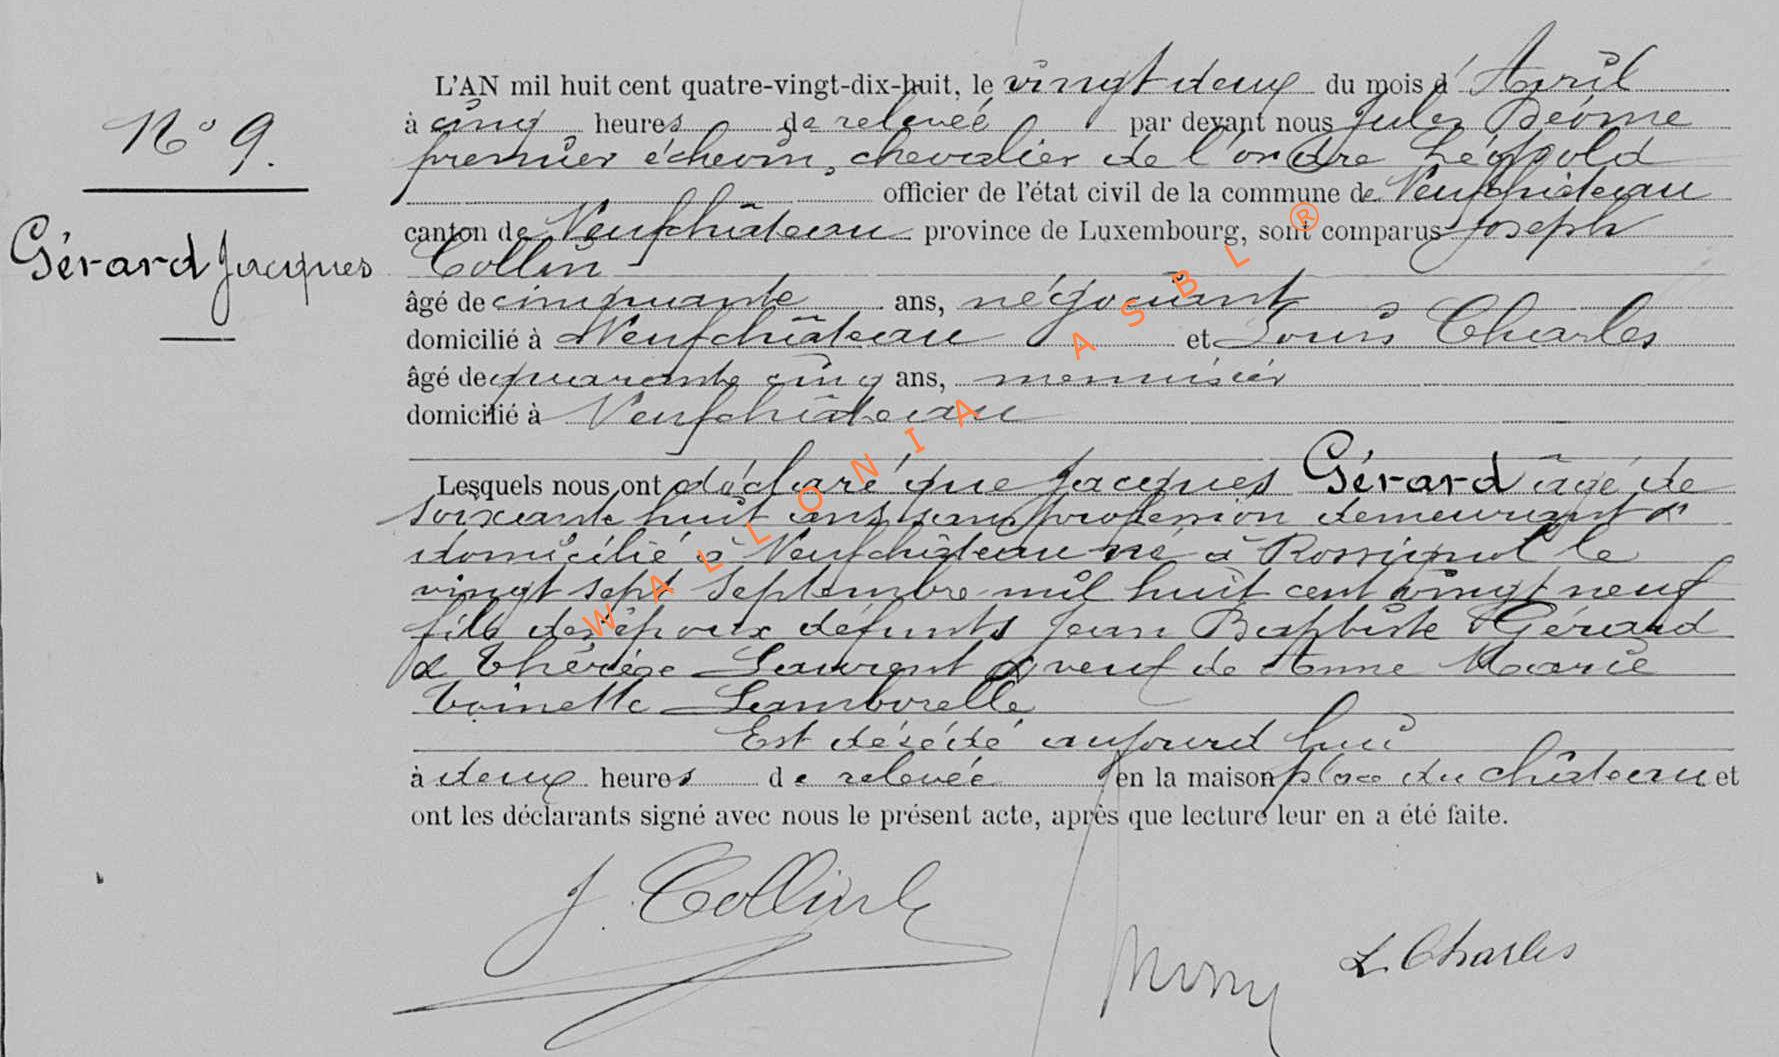 L'AN mil huit cent quatre-vingt-dix-huit, le vingt deux du mois d' Avril
N° 9.
à cinq heures de relevée par devant nous Jules Déome
premier échevin, chevalier de l'ordre Léopold
officier de l'état civil de la commune de Neufchâteau
Gérard Jacques
canton de Neufchâteau province de Luxembourg, sont comparus Joseph
Collin
âgé de cinquante ans, négociant
domicilié à Neufchâteau et Louis Charles
âgé de quarante cinq ans, menuisier
domicilié à Neufchâteau
Lesquels nous ont déclaré que Jacques Gérard âgé de
soixante huit ans sans profession demeurant &
domicilié à Neufchâteau né à Rossignol le
vingt sept Septembre mil huit cent vingt neuf
fils des époux défunts Jean Baptiste Gérard
& Thérèse Laurent & veuf de Anne Marie
Toinette Lamborelle
Est décédé aujourd'hui
à deux heures de relevée en la maison place du château et
ont les déclarants signé avec nous le présent acte, après que lecture leur en a été faite.
J. Collin
L. Charles
WALLONIA ASBL ®